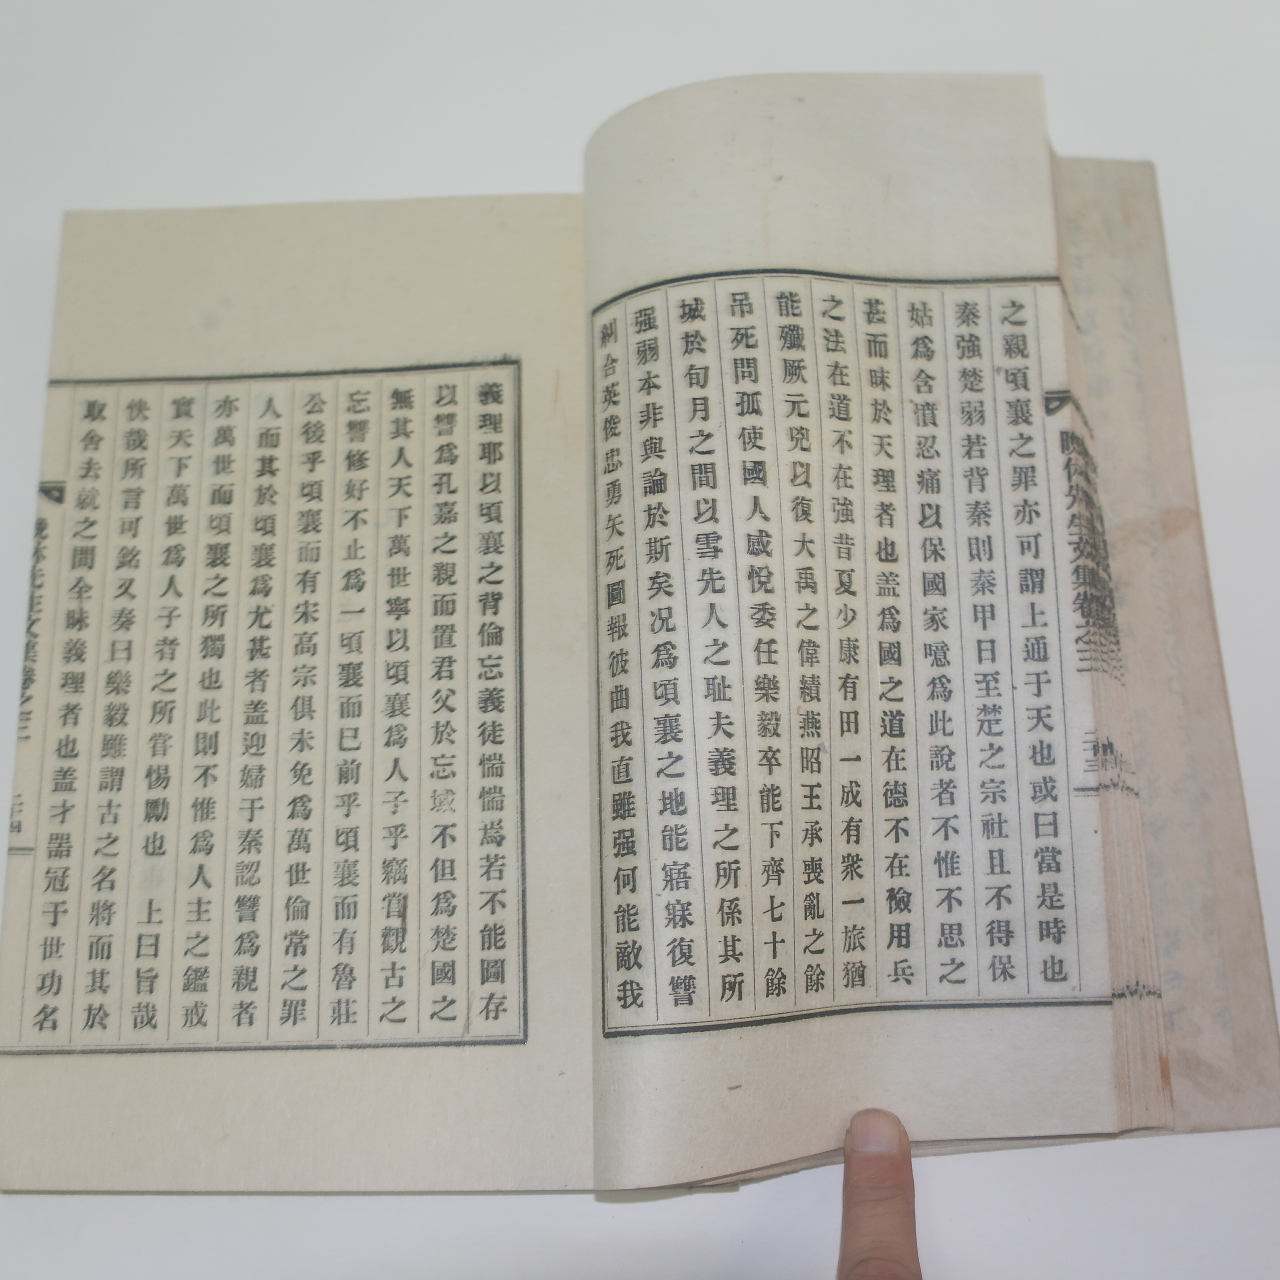 之親頃襄之罪亦可謂上通于天也或曰當是時也
秦強楚弱若背秦則秦甲日至楚之宗社且不得保
姑爲含憤忍痛以保國家噫爲此說者不惟不思之
甚而昧於天理者也盖爲國之道在德不在險用兵
之法在道不在強昔夏少康有田一成有衆一旅猶
能殲厥元兇以復大禹之偉績燕昭王承喪亂之餘
吊死問孤使國人感悅委任樂毅卒能下齊七十餘
城於旬月之間以雪先人之耻夫義理之所係其所
强弱本非與論於斯矣况爲頃襄之地能寤寐復讐
糾合英俊忠勇矢死圖報彼曲我直雖强何能敵我
義理耶以頃襄之背倫忘義徒惴惴焉若不能圖存
以讐爲孔嘉之親而置君父於忘域不但爲楚國之
無其人天下萬世寧以頃襄爲人子乎竊嘗觀古之
忘讐修好不止爲一頃襄而巳前乎頃襄而有魯莊
公後乎頃襄而有宋高宗俱未免爲萬世倫常之罪
人而其於頃襄爲尤甚者盖迎婦于秦認讐爲親者
亦萬世而頃襄之所獨也此則不惟爲人主之鑑戒
實天下萬世爲人子者之所嘗惕勵也 上曰旨哉
快哉所言可銘又奏曰樂毅雖謂古之名將而其於
取舍去就之間全昧義理者也盖才器冠于世功名
文集卷之三
二十四